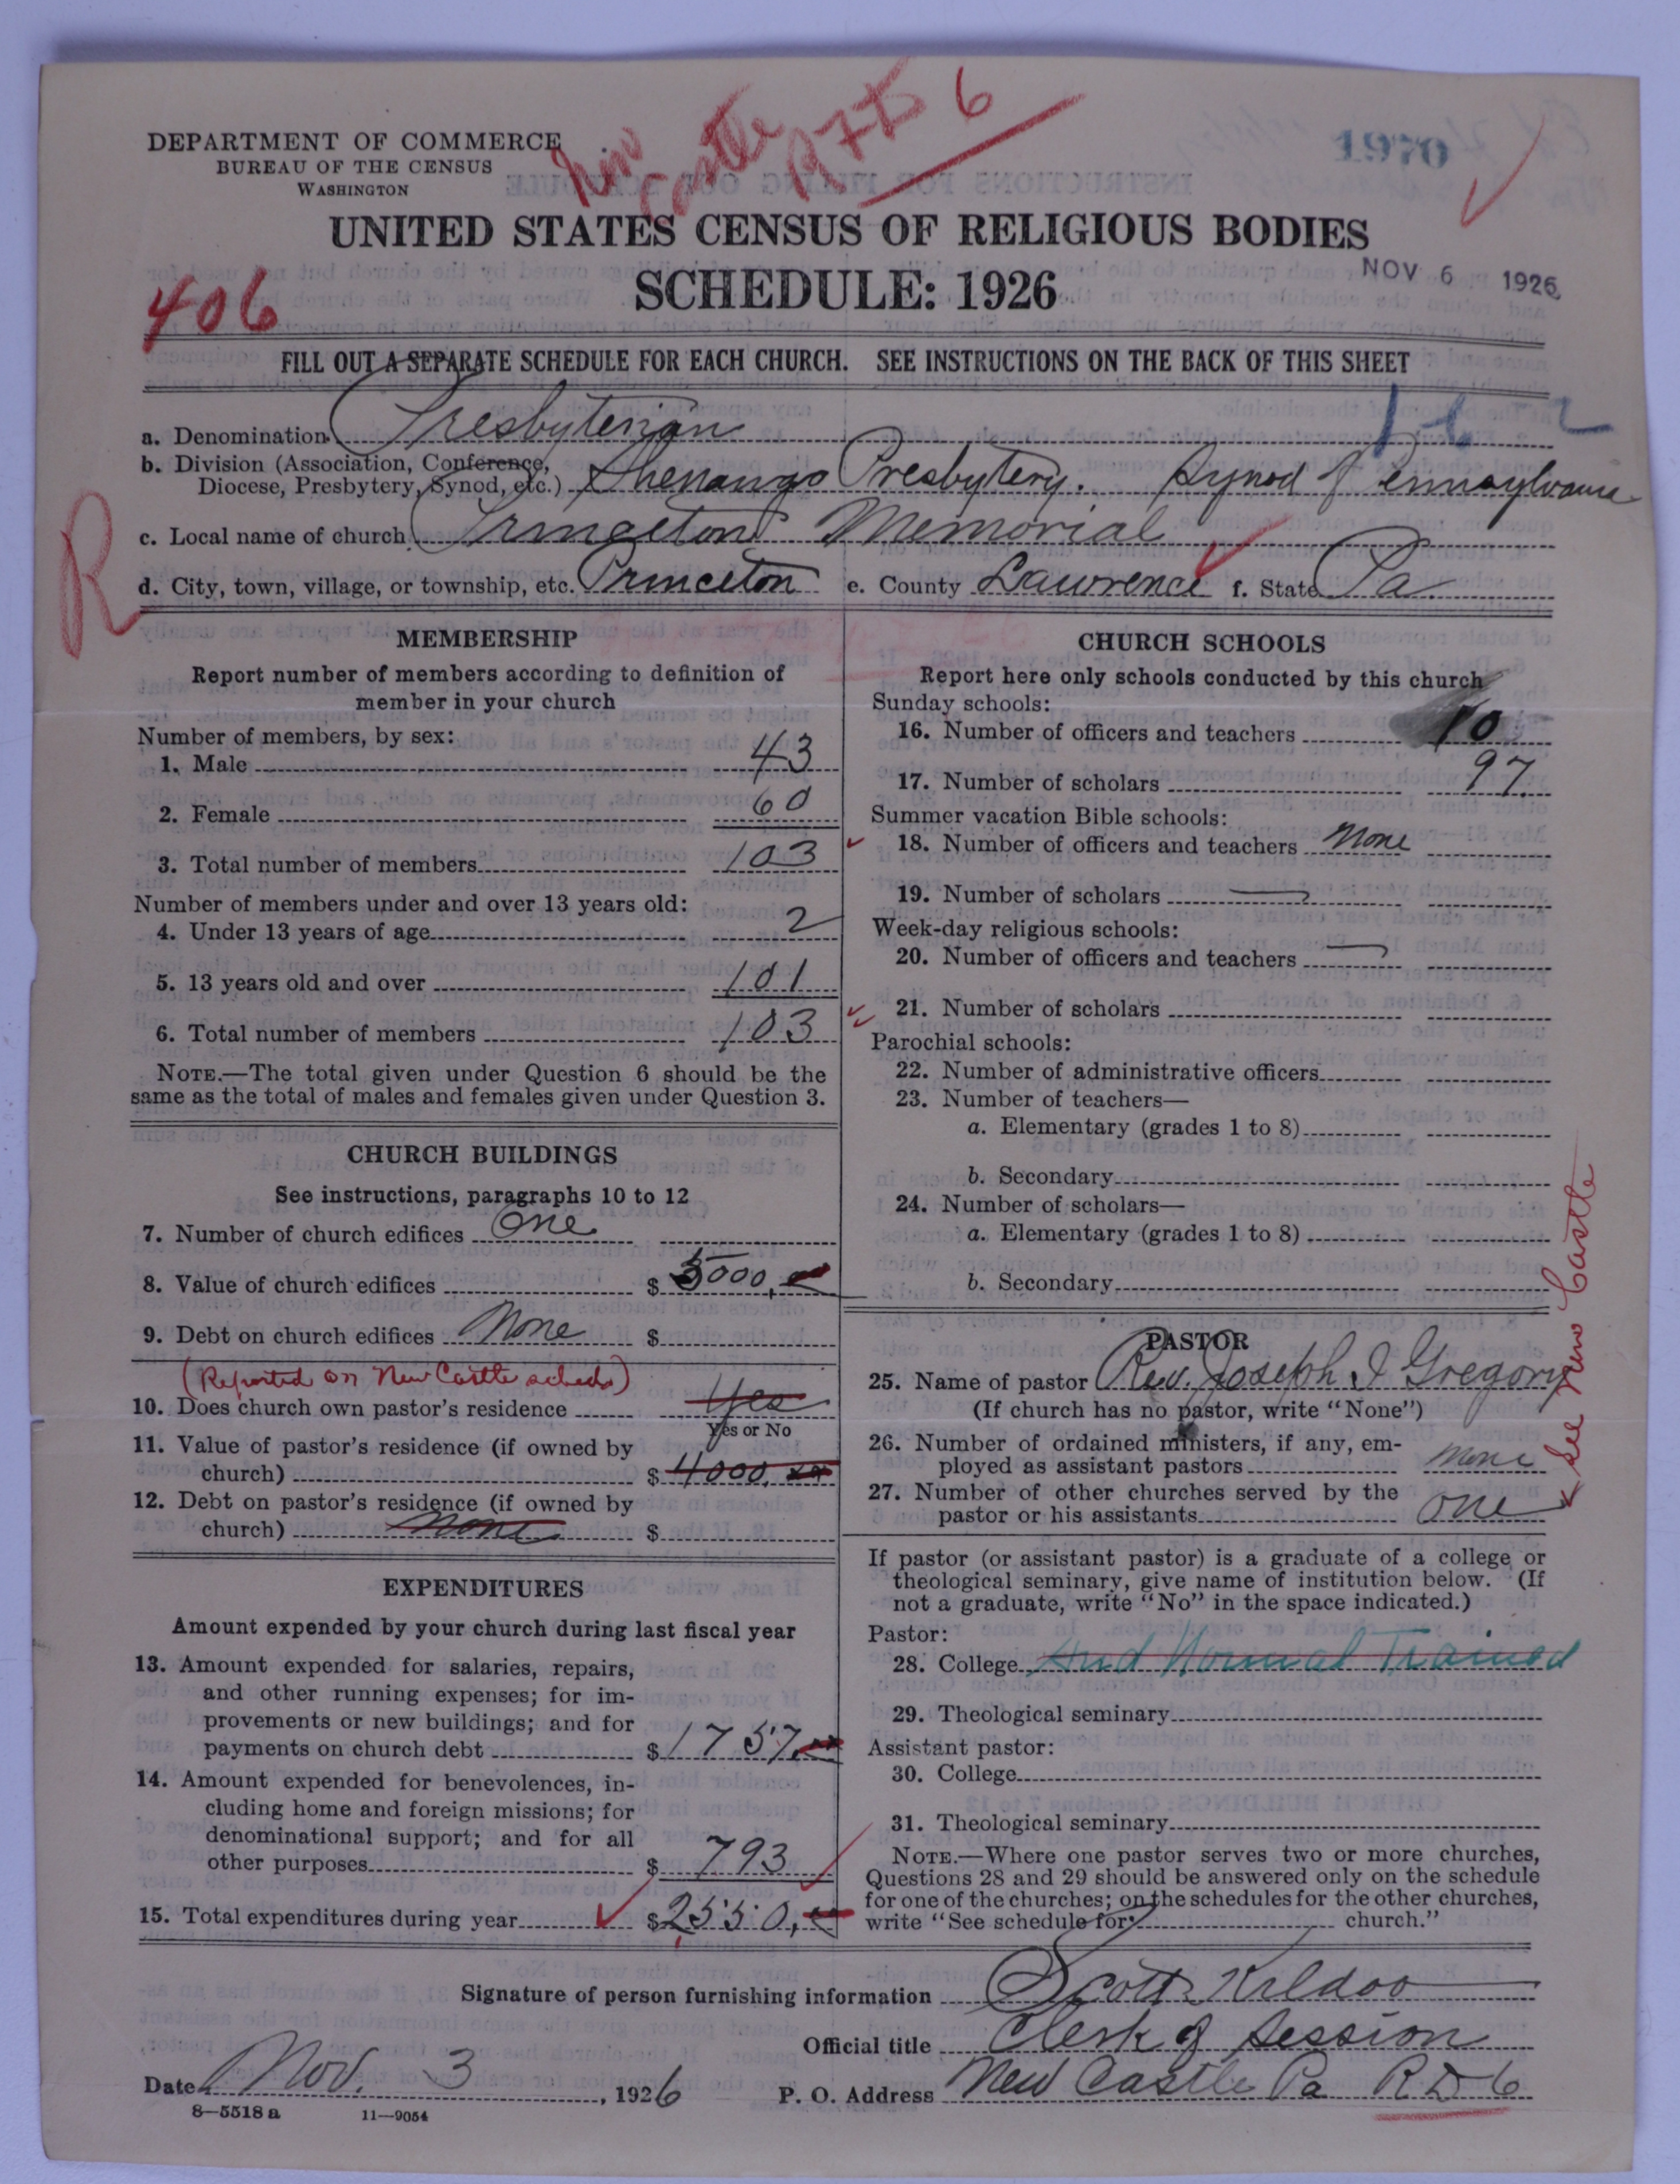 DEPARTMENT OF COMMERCE
BUREAU OF THE CENSUS
WASHINGTON
New Castle
6
1970
UNITED STATES CENSUS OF RELIGIOUS BODIES
SCHEDULE: 1926
NOV 6 1926
406
FILL OUT A SEPARATE SCHEDULE FOR EACH CHURCH. SEE INSTRUCTIONS ON THE BACK OF THIS SHEET
a. Denomination Presbyterian
b. Division (Association, Conference, Diocese, Presbytery, Synod, etc.) Shenango Presbytery. Synod of Pennsylvania
c. Local name of church Princeton Memorial
R
d. City, town, village, or township, etc. Princeton e. County Lawrence f. State Pa.
MEMBERSHIP
Report number of members according to definition of
member in your church
Number of members, by sex:
1. Male 43
2. Female 60
3. Total number of members 103
Number of members under and over 13 years old:
4. Under 13 years of age 2
5. 13 years old and over 101
6. Total number of members 103
NOTE.—The total given under Question 6 should be the
same as the total of males and females given under Question 3.
CHURCH BUILDINGS
See instructions, paragraphs 10 to 12
7. Number of church edifices One
8. Value of church edifices $ 5000,
9. Debt on church edifices None $
(Reported on New Castle sched)
10. Does church own pastor's residence Yes
Yes or No
11. Value of pastor's residence (if owned by
church) $ 4000.
12. Debt on pastor's residence (if owned by
church) None $
EXPENDITURES
Amount expended by your church during last fiscal year
13. Amount expended for salaries, repairs,
and other running expenses; for im-
provements or new buildings; and for
payments on church debt $ 1757.
14. Amount expended for benevolences, in-
cluding home and foreign missions; for
denominational support; and for all
other purposes $ 793
15. Total expenditures during year $ 2550,
CHURCH SCHOOLS
Report here only schools conducted by this church
Sunday schools:
16. Number of officers and teachers 10
17. Number of scholars 97.
Summer vacation Bible schools:
18. Number of officers and teachers None
19. Number of scholars
Week-day religious schools:
20. Number of officers and teachers
21. Number of scholars
Parochial schools:
22. Number of administrative officers
23. Number of teachers—
a. Elementary (grades 1 to 8)
b. Secondary
24. Number of scholars—
a. Elementary (grades 1 to 8)
b. Secondary
PASTOR
25. Name of pastor Rev. Joseph I Gregory
(If church has no pastor, write "None")
26. Number of ordained ministers, if any, em-
ployed as assistant pastors None
27. Number of other churches served by the
pastor or his assistants One
See New Castle
If pastor (or assistant pastor) is a graduate of a college or
theological seminary, give name of institution below. (If
not a graduate, write "No" in the space indicated.)
Pastor:
28. College Normal Trained
29. Theological seminary
Assistant pastor:
30. College
31. Theological seminary
NOTE.—Where one pastor serves two or more churches,
Questions 28 and 29 should be answered only on the schedule
for one of the churches; on the schedules for the other churches,
write "See schedule for church."
Signature of person furnishing information Scott Kildoo
Official title Clerk of Session
Date Nov. 3, 1926 P. O. Address New Castle Pa R D 6
8—5518 a 11—9054